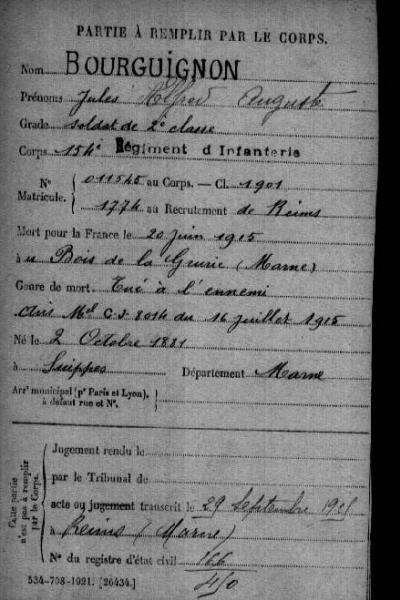 PARTIE À REMPLIR PAR LE CORPS.
Nom BOURGUIGNON
Prénoms Jules Alfred Auguste
Grade soldat de 2e classe
Corps 154e Régiment d Infanterie
N° Matricule. 011545 au Corps. — Cl. 1901
1774 au Recrutement de Reims
Mort pour la France le 20 juin 1915
à u Bois de la Grurie (Marne)
Genre de mort Tué à l'ennemi
Avis Mel C.S. 8014 du 16 juillet 1915
Né le 2 Octobre 1881
à Suippes Département Marne
Arrt municipal (pr Paris et Lyon), à défaut rue et N°.
Cette partie n'est pas à remplir par le Corps.
Jugement rendu le
par le Tribunal de
acte ou jugement transcrit le 29 Septembre
à Reims (Marne)
N° du registre d'état civil 166
410
534-708-1921. [26434.]